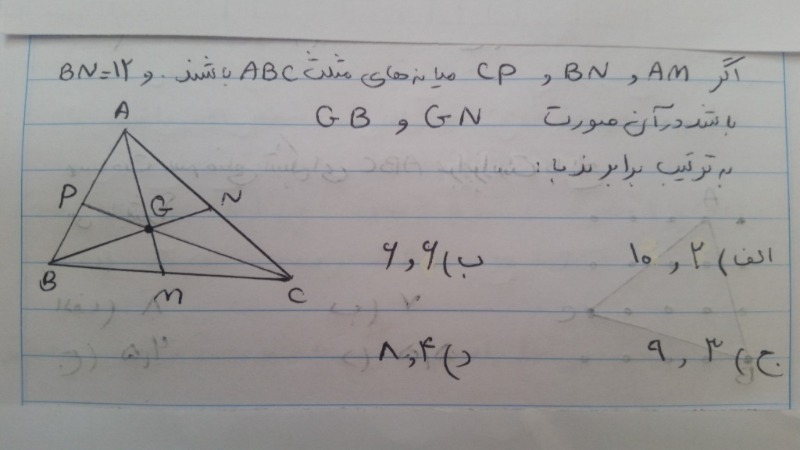 اگر AM و BN و CP میانه‌های مثلث ABC باشند. و BN=۱۲
باشد در آن صورت GN و GB
به ترتیب برابرند با:
A
P
G
N
B
M
C
الف) ۲ و ۱۰
ب) ۶ و ۶
ج) ۳ و ۹
د) ۴ و ۸